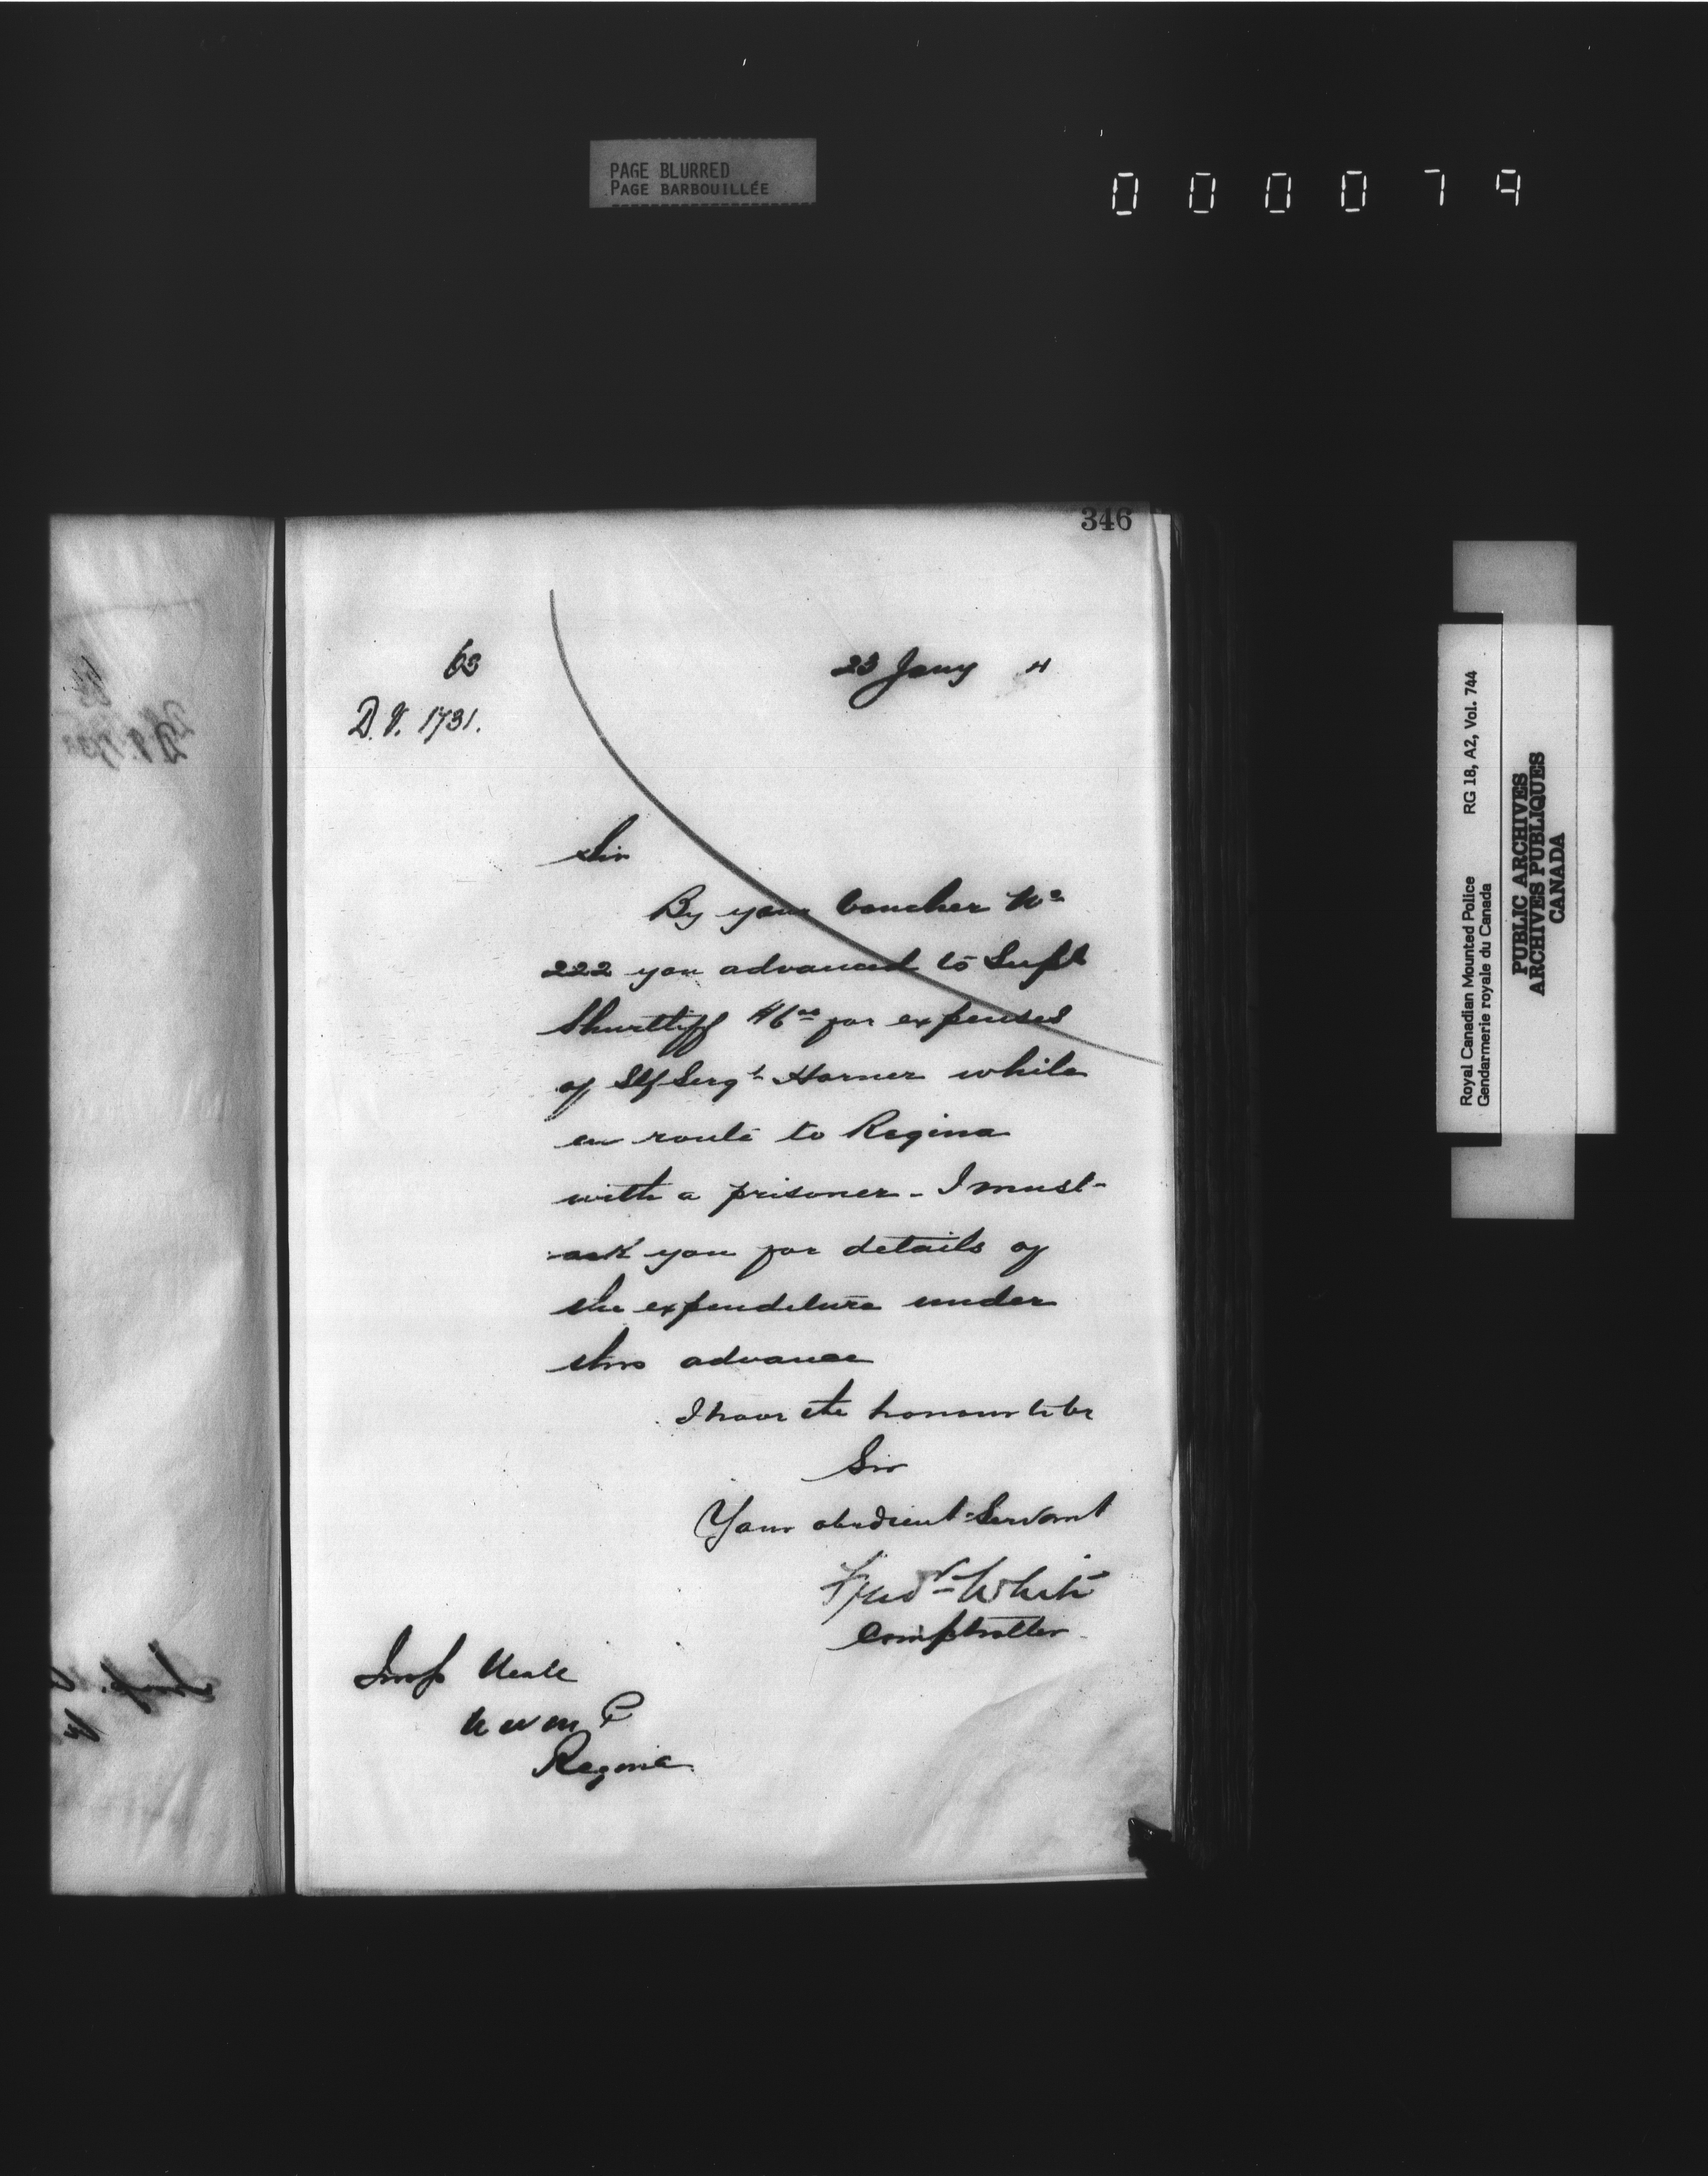 PAGE BLURRED
PAGE BARBOUILLÉE
000079
346
63
23 Jany 4
D.V. 1731.
Sir
By your Voucher No
222 you advanced to Supt
Shurtliff 46 00 for expenses
of Stf Sergt Horner while
en route to Regina
with a prisoner - I must
ask you for details of
the expenditure under
this advance
I have the honour to be
Sir
Your obedient Servant
Fred White
Comptroller
Insp Neale
N W M P
Regina
Royal Canadian Mounted Police RG 18, A2, Vol. 744
Gendarmerie royale du Canada
PUBLIC ARCHIVES
ARCHIVES PUBLIQUES
CANADA